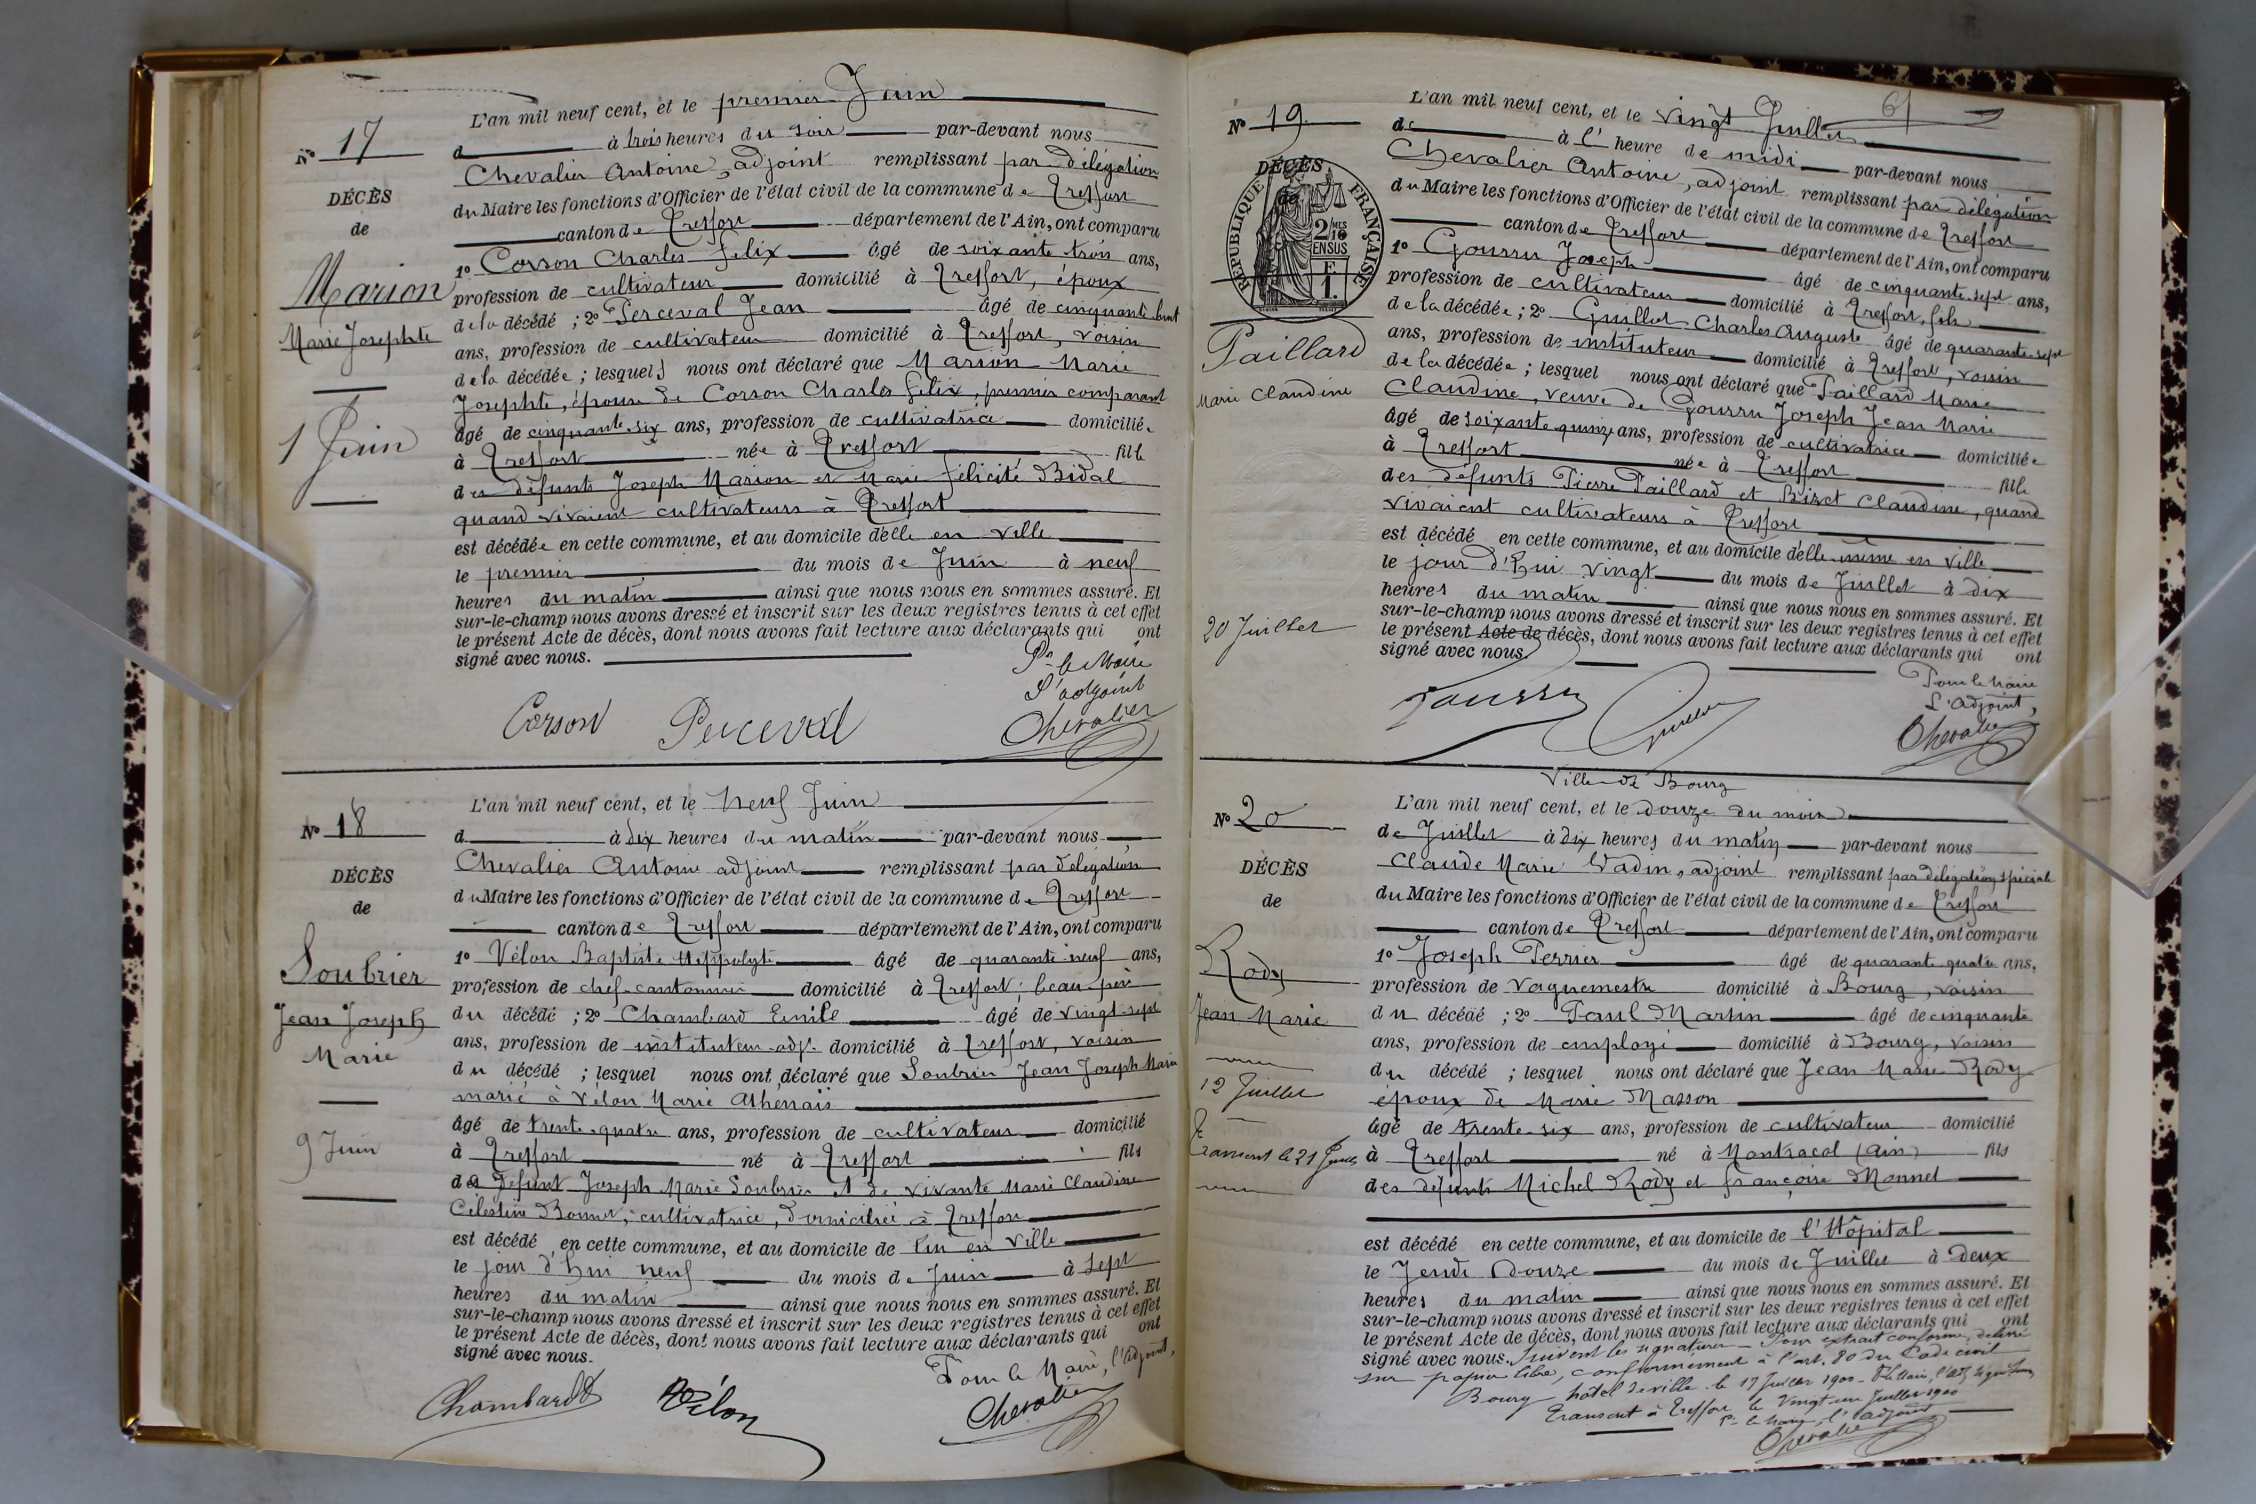 N° 17
DÉCÈS
de
Marion
Marie Josephte
1 Juin
L'an mil neuf cent, et le premier Juin
d à trois heures du soir par-devant nous
Chevalier Antoine, adjoint remplissant par délégation
du Maire les fonctions d'Officier de l'état civil de la commune de Treffort
canton de Treffort département de l'Ain, ont comparu
1° Corson Charles Felix âgé de soixante trois ans,
profession de cultivateur domicilié à Treffort, époux
de la décédé ; 2° Perceval Jean âgé de cinquante huit
ans, profession de cultivateur domicilié à Treffort, voisin
de la décédée ; lesquels nous ont déclaré que Marion Marie
Josephte, épouse de Corson Charles Felix, premier comparant
âgé de cinquante-six ans, profession de cultivatrice domiciliée
à Treffort née à Treffort fille
des défunts Joseph Marion et Marie Félicité Bidal
quand vivaient cultivateurs à Treffort
est décédée en cette commune, et au domicile d'elle en ville
le premier du mois de Juin à neuf
heures du matin ainsi que nous nous en sommes assuré. Et
sur-le-champ nous avons dressé et inscrit sur les deux registres tenus à cet effet
le présent Acte de décès, dont nous avons fait lecture aux déclarants qui ont
signé avec nous.
Pr le Maire
L'adjoint
Corson Perceval Chevalier
N° 18
DÉCÈS
de
Soubrier
Jean Joseph
Marie
9 Juin
L'an mil neuf cent, et le neuf Juin
d à dix heures du matin par-devant nous
Chevalier Antoine adjoint remplissant par délégation
du Maire les fonctions d'Officier de l'état civil de la commune de Treffort
canton de Treffort département de l'Ain, ont comparu
1° Vélon Baptiste Hippolyte âgé de quarante-neuf ans,
profession de chef-cantonnier domicilié à Treffort, beau-père
du décédé ; 2° Chambard Emile âgé de vingt-sept
ans, profession de instituteur-adjt domicilié à Treffort, voisin
du décédé ; lesquel nous ont déclaré que Soubrier Jean Joseph Marie
marié à Vélon Marie Athénaïs
âgé de trente-quatre ans, profession de cultivateur domicilié
à Treffort né à Treffort fils
des défunt Joseph Marie Soubrier et de vivante Marie Claudine
Célestine Bonnet, cultivatrice, domiciliée à Treffort
est décédé en cette commune, et au domicile de lui en ville
le jour d'hui neuf du mois de Juin à sept
heures du matin ainsi que nous nous en sommes assuré. Et
sur-le-champ nous avons dressé et inscrit sur les deux registres tenus à cet effet
le présent Acte de décès, dont nous avons fait lecture aux déclarants qui ont
signé avec nous.
Pour le Maire, l'adjoint,
Chambard Vélon Chevalier
61
N° 19
DÉCÈS
de
RÉPUBLIQUE FRANÇAISE
2 MES 1/2
EN SUS
F
1.
Paillard
Marie Claudine
20 Juillet
L'an mil neuf cent, et le vingt Juillet
de à l' heure de midi par-devant nous
Chevalier Antoine, adjoint remplissant par délégation
du Maire les fonctions d'Officier de l'état civil de la commune de Treffort
canton de Treffort département de l'Ain, ont comparu
1° Goursu Joseph âgé de cinquante-sept ans,
profession de cultivateur domicilié à Treffort, fils
de la décédée ; 2° Guillot Charles Auguste âgé de quarante-sept
ans, profession de instituteur domicilié à Treffort, voisin
de la décédée ; lesquel nous ont déclaré que Paillard Marie
Claudine, veuve de Goursu Joseph Jean Marie
âgé de soixante quinze ans, profession de cultivatrice domiciliée
à Treffort née à Treffort fille
des défunts Pierre Paillard et Bizet Claudine, quand
vivaient cultivateurs à Treffort
est décédé en cette commune, et au domicile d'elle-même en ville
le jour d'hui vingt du mois de Juillet à dix
heures du matin ainsi que nous nous en sommes assuré. Et
sur-le-champ nous avons dressé et inscrit sur les deux registres tenus à cet effet
le présent Acte de décès, dont nous avons fait lecture aux déclarants qui ont
signé avec nous.
Pour le Maire
L'Adjoint,
Guillot Chevalier
Ville de Bourg
N° 20
DÉCÈS
de
Rody
Jean Marie
12 Juillet
Transcrit le 21 Juillet
L'an mil neuf cent, et le douze du mois
de Juillet à dix heures du matin par-devant nous
Claude Marie Vadin, adjoint remplissant par délégation spéciale
du Maire les fonctions d'Officier de l'état civil de la commune de Treffort
canton de Treffort département de l'Ain, ont comparu
1° Joseph Perrier âgé de quarante quatre ans,
profession de Vaguemestre domicilié à Bourg, voisin
du décédé ; 2° Paul Martin âgé de cinquante
ans, profession de employé domicilié à Bourg, voisin
du décédé ; lesquel nous ont déclaré que Jean Marie Rody
époux de Marie Masson
âgé de trente-six ans, profession de cultivateur domicilié
à Treffort né à Montracol (Ain) fils
des défunts Michel Rody et Françoise Monnet
est décédé en cette commune, et au domicile de l'Hôpital
le Jeudi Douze du mois de Juillet à Deux
heures du matin ainsi que nous nous en sommes assuré. Et
sur-le-champ nous avons dressé et inscrit sur les deux registres tenus à cet effet
le présent Acte de décès, dont nous avons fait lecture aux déclarants qui ont
signé avec nous. Suivent les signatures - Pour extrait conforme, délivré
sur papier libre, conformément à l'art. 80 du Code civil
Bourg hôtel de ville le 17 Juillet 1900
Transcrit à Treffort le vingt-un Juillet 1900
Pr le Maire, l'adjoint
Chevalier